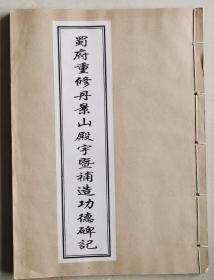 蜀府重修丹景山殿宇暨補造功德碑記